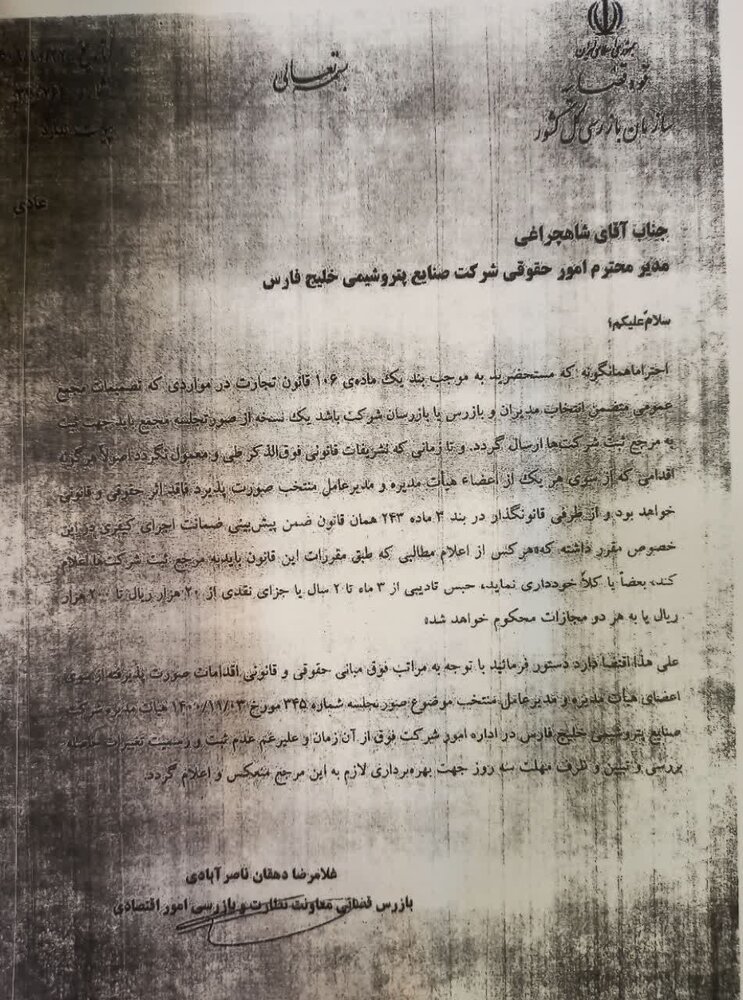 جمهوری اسلامی ایران
قوه قضاییه
سازمان بازرسی کل کشور
بسمه تعالی
تاریخ
شماره
پیوست ندارد
عادی
جناب آقای شاهچراغی
مدیر محترم امور حقوقی شرکت صنایع پتروشیمی خلیج فارس
سلام علیکم؛
احتراما همانگونه که مستحضرید به موجب بند یک ماده‌ی ۱۰۶ قانون تجارت در مواردی که تصمیمات مجمع
عمومی متضمن انتخاب مدیران و بازرس یا بازرسان شرکت باشد یک نسخه از صورتجلسه مجمع باید جهت ثبت
به مرجع ثبت شرکت‌ها ارسال گردد. و تا زمانی که تشریفات قانونی فوق‌الذکر طی و معمول نگردد اصولا هرگونه
اقدامی که از سوی هر یک از اعضاء هیأت مدیره و مدیرعامل منتخب صورت پذیرد فاقد اثر حقوقی و قانونی
خواهد بود و از طرفی قانونگذار در بند ۳ ماده ۲۴۳ همان قانون ضمن پیش‌بینی ضمانت اجرای کیفری در این
خصوص مقرر داشته که«هرکس از اعلام مطالبی که طبق مقررات این قانون باید به مرجع ثبت شرکت‌ها اعلام
کند، بعضاً یا کلاً خودداری نماید، حبس تادیبی از ۳ ماه تا ۲ سال یا جزای نقدی از ۲۰ هزار ریال تا ۲۰۰ هزار
ریال یا به هر دو مجازات محکوم خواهد شد»
علی هذا اقتضا دارد دستور فرمائید با توجه به مراتب فوق مبانی حقوقی و قانونی اقدامات صورت پذیرفته از سوی
اعضای هیأت مدیره و مدیرعامل منتخب موضوع صورتجلسه شماره ۳۴۵ مورخ ۱۴۰۰/۱۱/۰۳ هیأت مدیره شرکت
صنایع پتروشیمی خلیج فارس در اداره امور شرکت فوق از آن زمان و علیرغم عدم ثبت و رسمیت تغییرات حاصله
بررسی و تبیین و ظرف مهلت سه روز جهت بهره‌برداری لازم به این مرجع منعکس و اعلام گردد.
غلامرضا دهقان ناصرآبادی
بازرس قضائی معاونت نظارت و بازرسی امور اقتصادی